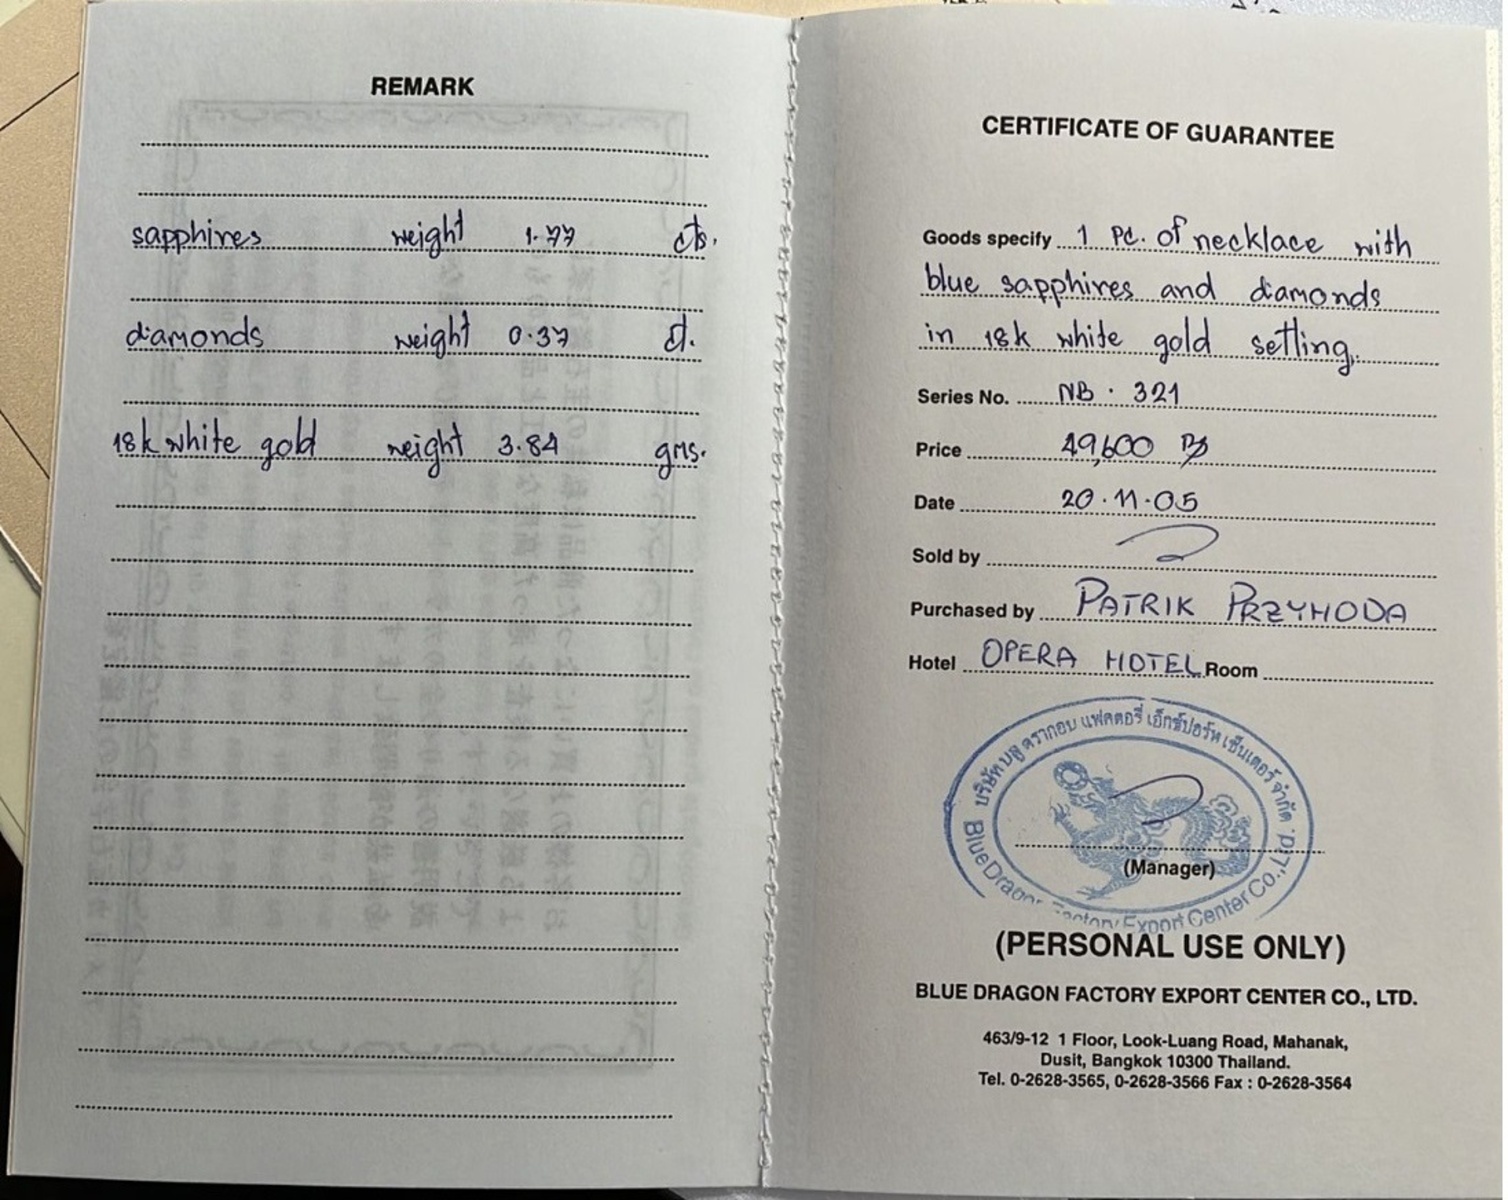 REMARK
sapphires weight 1.77 cts.
diamonds weight 0.37 ct.
18k white gold weight 3.84 gms.
CERTIFICATE OF GUARANTEE
Goods specify 1 pc. of necklace with
blue sapphires and diamonds
in 18k white gold setting.
Series No. NB . 321
Price 49,600 ฿
Date 20.11.05
Sold by
Purchased by PATRIK PRZYHODA
Hotel OPERA HOTEL Room
บริษัท บลู ดรากอน แฟคตอรี่ เอ็กซ์ปอร์ท เซ็นเตอร์ จำกัด
Blue Dragon Factory Export Center Co.,LTD.
(Manager)
(PERSONAL USE ONLY)
BLUE DRAGON FACTORY EXPORT CENTER CO., LTD.
463/9-12 1 Floor, Look-Luang Road, Mahanak,
Dusit, Bangkok 10300 Thailand.
Tel. 0-2628-3565, 0-2628-3566 Fax : 0-2628-3564